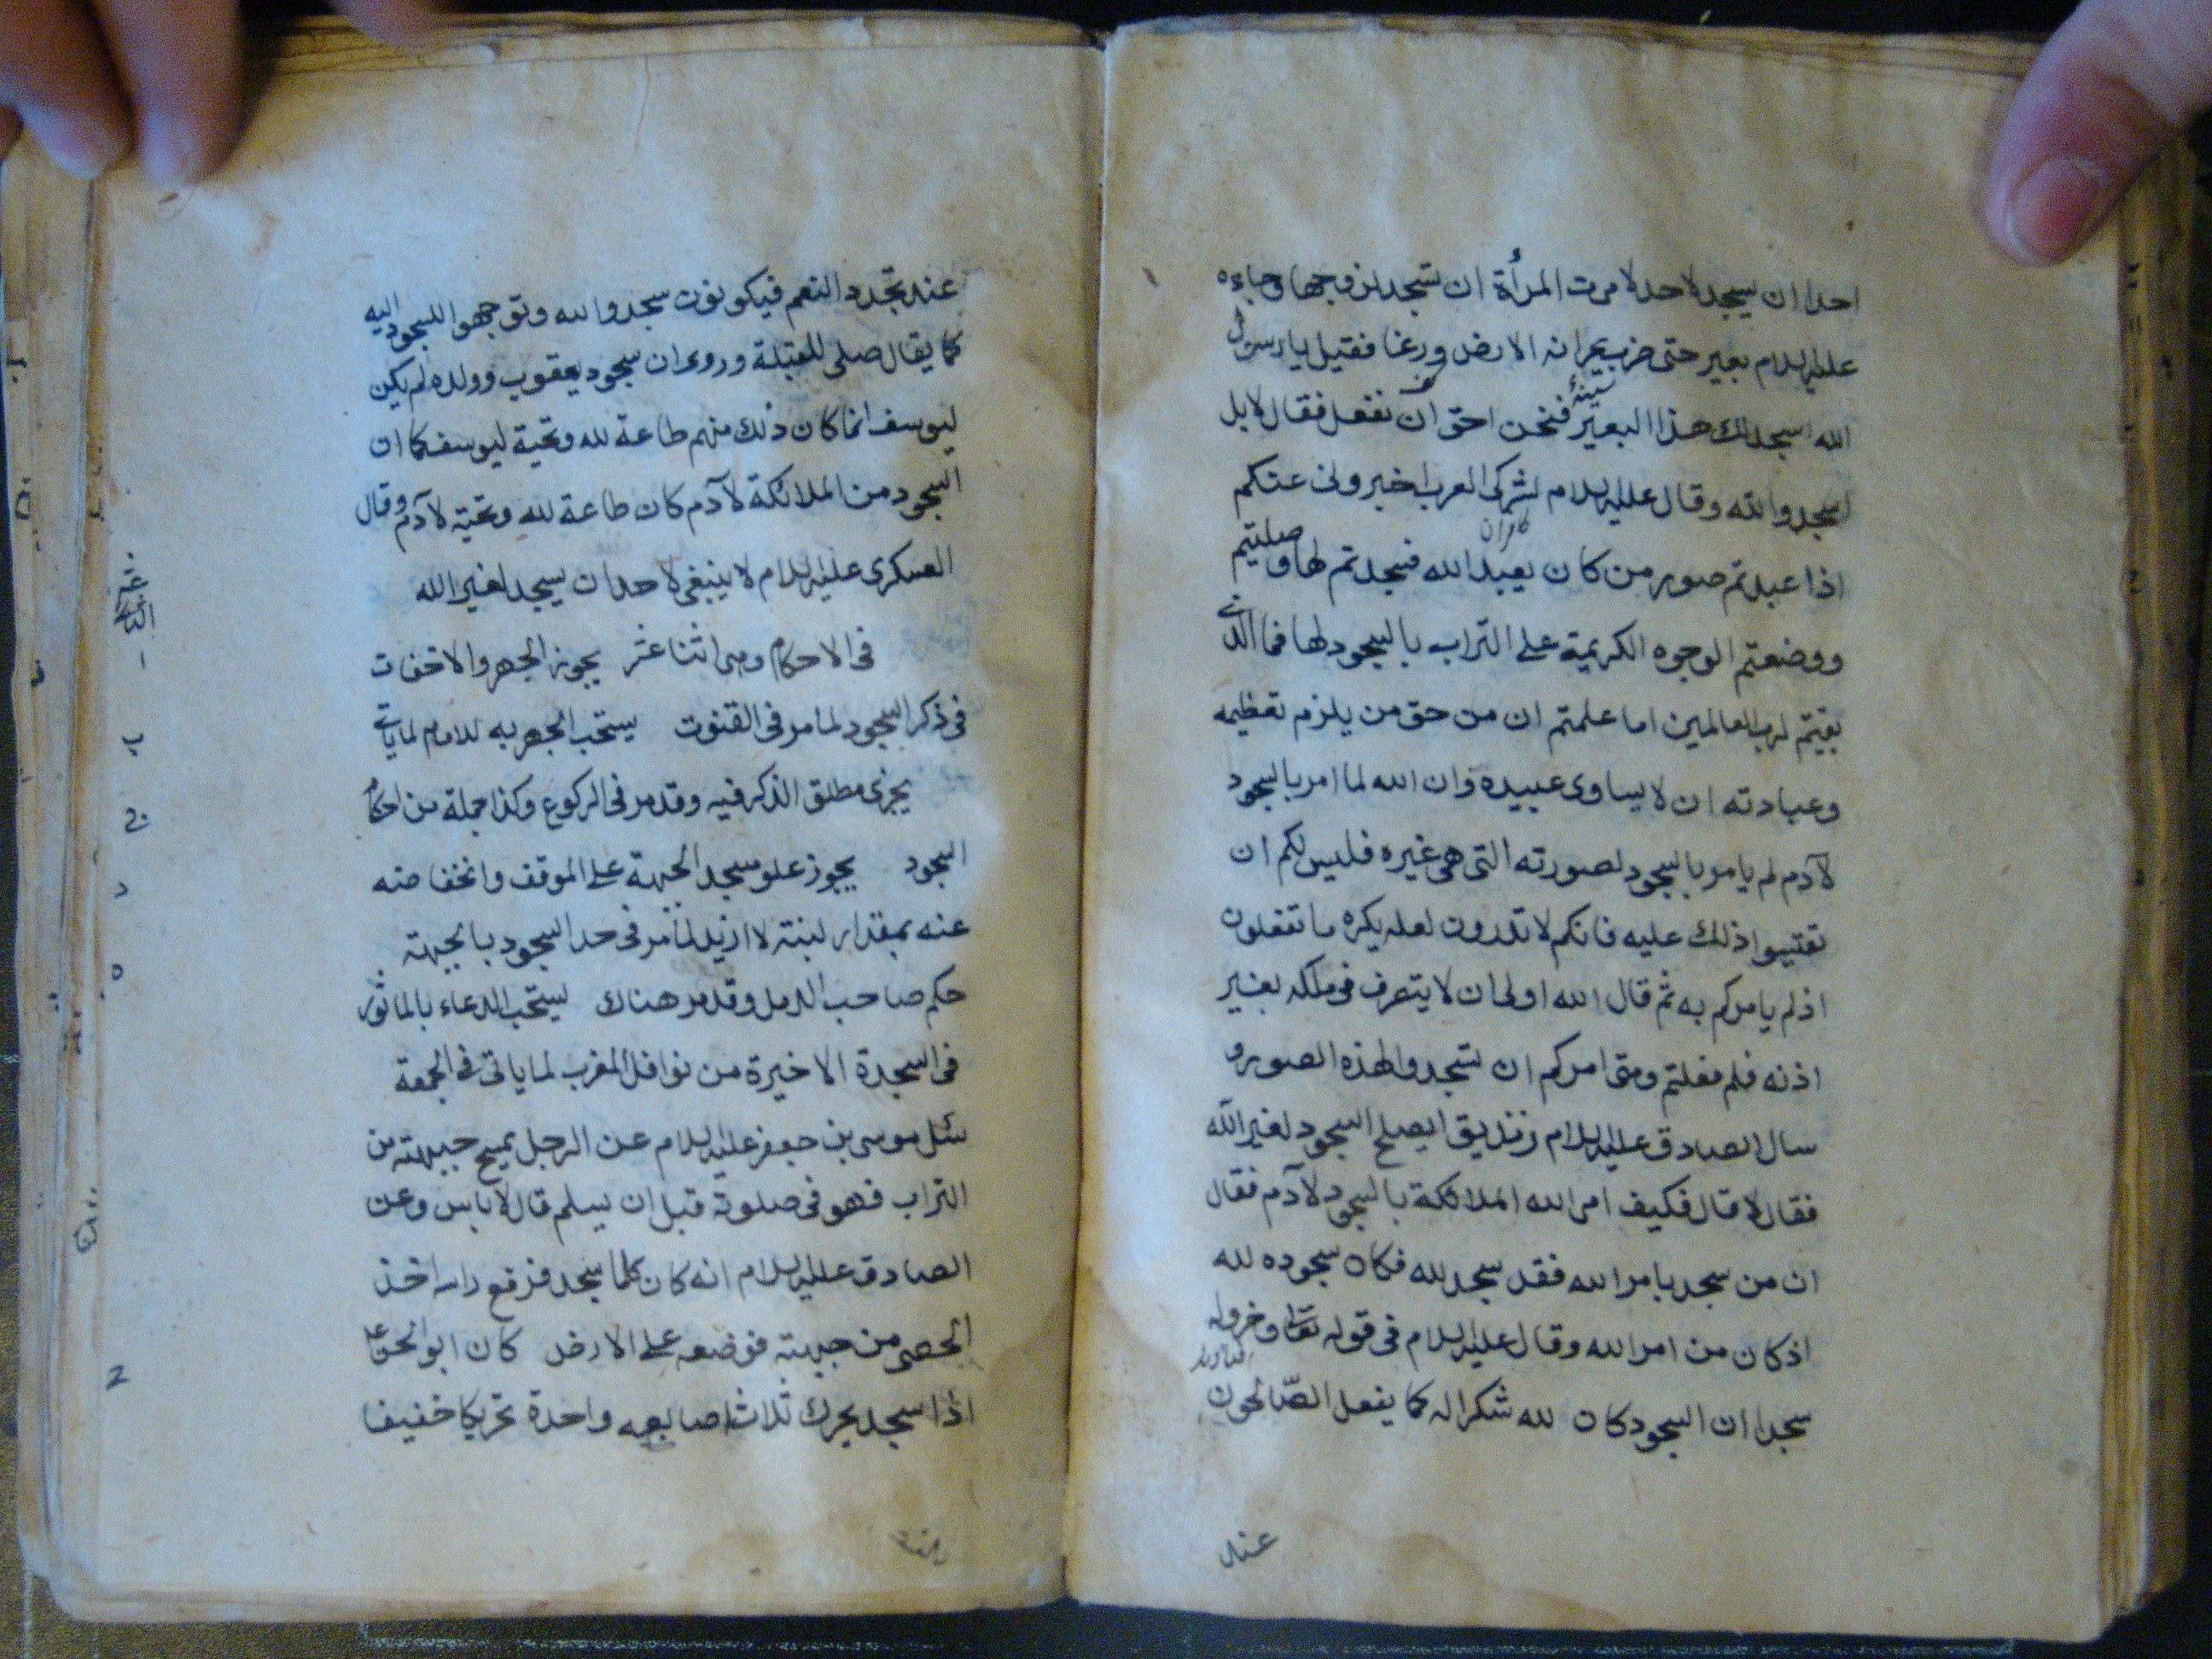 احدا ان يسجد لاحد لامرت المرأة ان تسجد لزوجها وجاءه
عليه السلام بعير حتى ضرب بجرانه الارض ورغا فقيل يا رسول
الله اسجد لك هذا البعير فنحن احق ان نفعل فقال لا بل
اسجدوا لله وقال عليه السلام لمشركى العرب اخبرونى عنكم
اذا عبدتم صور من كان يعبد الله فسجدتم لها وصليتم
ووضعتم الوجوه الكريمة على التراب بالسجود لها فما الذى
بقيتم لرب العالمين اما علمتم ان من حق من يلزم تعظيمه
وعبادته ان لا يساوى عبيده وان الله لما امر بالسجود
لآدم لم يامر بالسجود لصورته التى هى غيره فليس لكم ان
تقيسوا ذلك عليه فانكم لا تدرون لعله يكره ما تفعلون
اذ لم يامركم به ثم قال الله اولى ان لا يتصرف فى ملكه بغير
اذنه فلم فعلتم ومتى امركم ان تسجدوا لهذه الصور و
سال الصادق عليه السلام زنديق ايصلح السجود لغير الله
فقال لا قال فكيف امر الله الملائكة بالسجود لآدم فقال
ان من سجد بامر الله فقد سجد لله فكان سجوده لله
اذ كان من امر الله وقال عليه السلام فى قوله تعالى وخروا له
سجدا ان السجود كان لله شكرا له كما يفعل الصّالحون
عند
عند تجدد النعم فيكونون سجدوا لله وتوجهوا للسجود اليه
كما يقال صلى للقبلة وروى ان سجود يعقوب وولده لم يكن
ليوسف انما كان ذلك منهم طاعة لله وتحية ليوسف كما ان
السجود من الملائكة لآدم كان طاعة لله وتحية لآدم وقال
العسكرى عليه السلام لا ينبغى لاحد ان يسجد لغير الله
فى الاحكام وهى اثنا عشر يجوز الجهر والاخفات
فى ذكر السجود لما مر فى القنوت يستحب الجهر به للامام لما ياتى
يجزى مطلق الذكر فيه وقد مر فى الركوع وكذا جملة من احكام
السجود يجوز علو مسجد الجبهة على الموقف وانخفاضه
عنه بمقدار لبنة لا ازيد لما مر فى حد السجود بالجبهة
حكم صاحب الدمل وقد مر هناك يستحب الدعاء بالماثور
فى السجدة الاخيرة من نوافل المغرب لما ياتى فى الجمعة
سئل موسى بن جعفر عليه السلام عن الرجل يمسح جبهته من
التراب فهو فى صلوته قبل ان يسلم قال لا باس وعن
الصادق عليه السلام انه كان كلما سجد فرفع راسه اخذ
الحصى من جبهته فوضعه على الارض كان ابو الحسن ع
اذا سجد يحرك ثلاث اصابعه واحدة تحريكا خفيفا